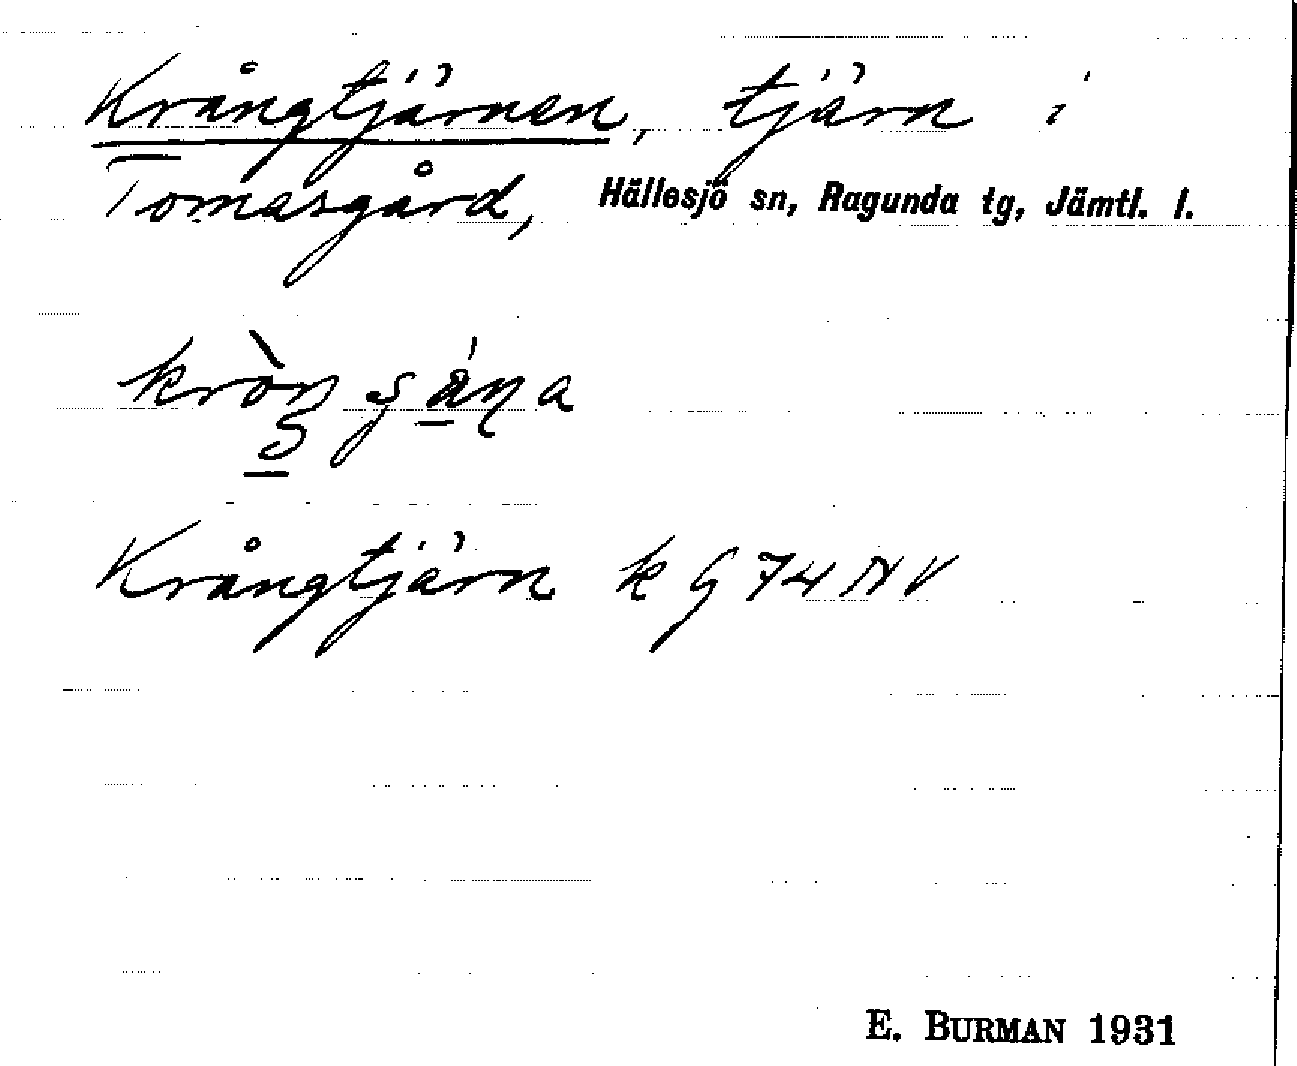 Krångtjärnen, tjärn i
Tomasgård, Hällesjö sn, Ragunda tg, Jämtl. l.
Krångtjärn k G 74 NV
E. BURMAN 1931